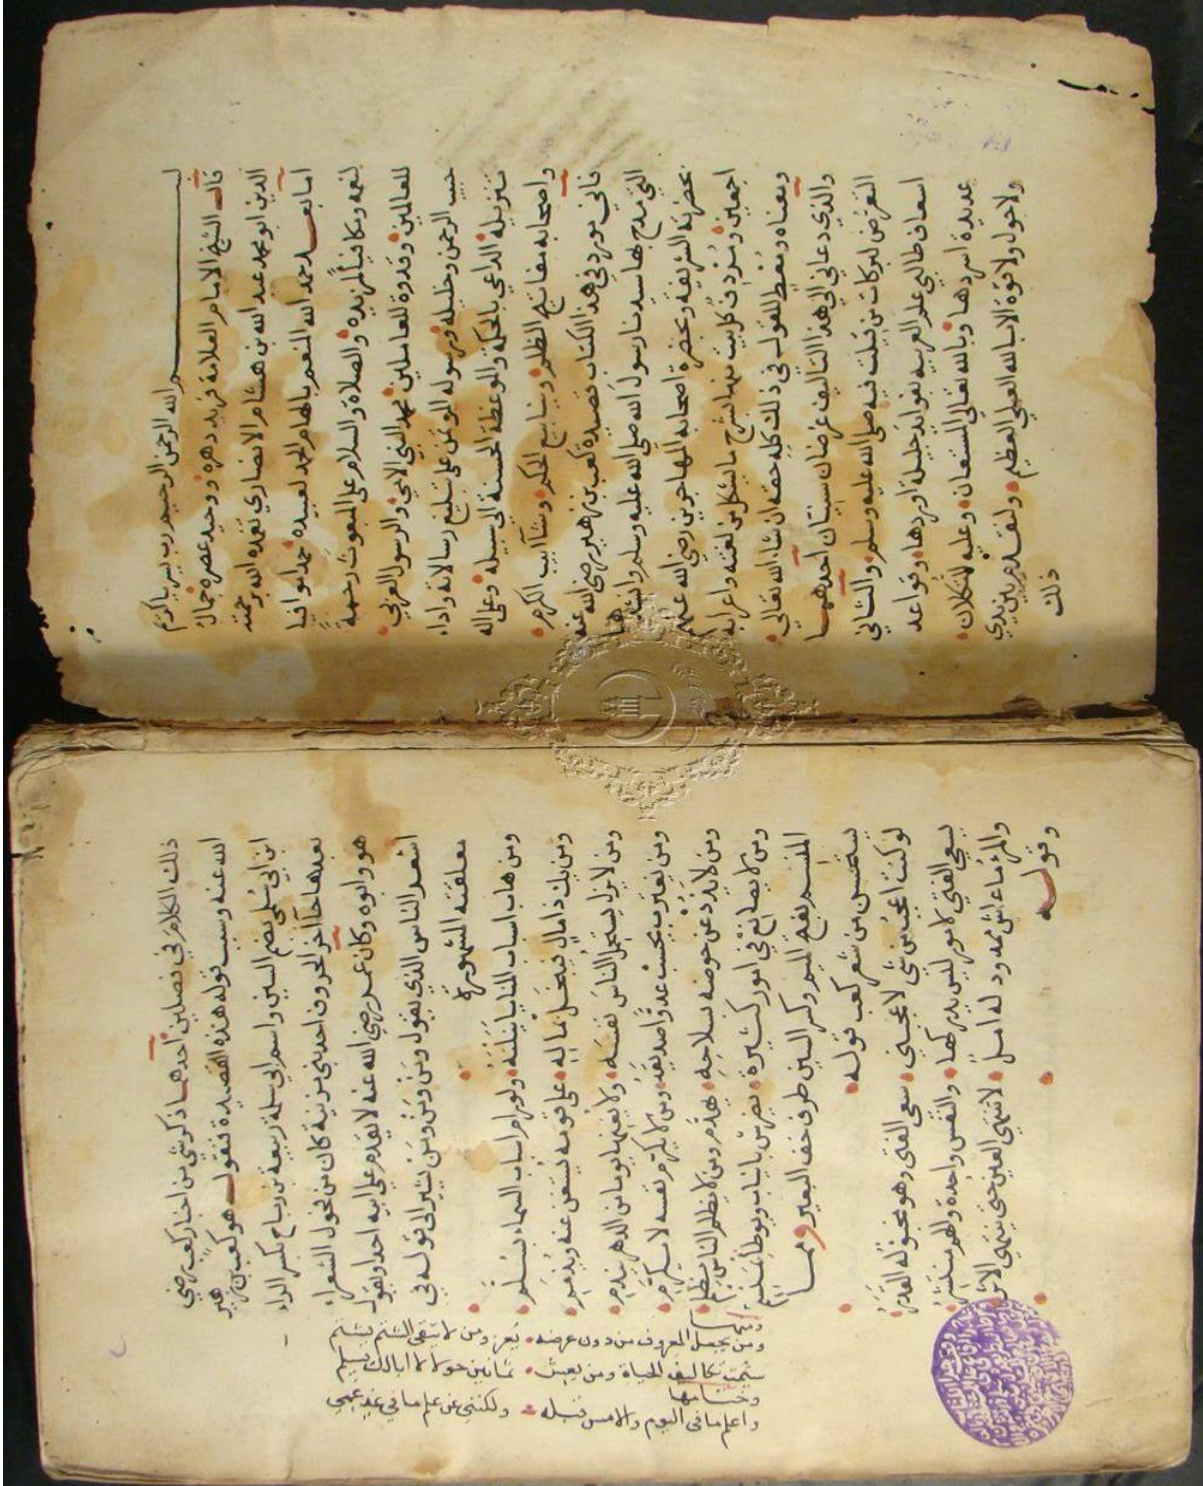 بسم الله الرحمن الرحيم رب يسر يا كريم
قال الشيخ الامام العلامة فريد دهره ووحيد عصره جمال
الدين ابو محمد عبد الله بن هشام الانصاري تغمده الله برحمته
اما بعد حمد الله المنعم بالهام الحمد لعبيده حمدا موافيا
لنعمه ومكافيا لمزيده والصلاة والسلام على المبعوث رحمة
للعالمين وقدوة للعاملين محمد النبي الامي والرسول العربي
حبيب الرحمن وخليله ورسوله الموتمن على تبليغ رسالاته واداء
تنزيله الداعي بالحكمة والموعظة الحسنة الى سبيله وعلى اله
واصحابه مفاتيح الظلم وينابيع الحكم وشآبيب الكرم
فاني مورد في هذا الكتاب قصيدة كعب بن زهير رضي الله عنه
التي مدح بها سيدنا رسول الله صلى الله عليه وسلم وانشدها
بحضرته الشريفة وبحضرة اصحابه المهاجرين رضي الله عنهم
اجمعين ومردف كل بيت منها بشرح ما يشكل من لغته واعرابه
ومعناه ومعط للقول في ذلك كله حقه ان شاء الله تعالى
والذي دعاني الى هذا التاليف غرضان سنيان احدهما
التعرض لبركات من قيلت فيه صلى الله عليه وسلم والثاني
اسعاف طالبي علم العربية بفوايد جليلة اوردها وقواعد
عديدة اسردها وبالله تعالى المستعان وعليه التكلان
ولا حول ولا قوة الا بالله العلي العظيم ولنقدم بين يدي
ذلك
ذلك الكلام في فصلين احدهما ذكر شي من اخبار كعب رضي
الله عنه وسبب قوله هذه القصيدة فنقول هو كعب بن زهير
ابن ابي سلمى بضم السين واسم ابي سلمة ربيعة بن رباح بكسر الراء
بعدها حآ آخر الحروف احد بني مزنية كان من فحول الشعراء
هو وابوه وكان عمر رضي الله عنه لا يقدم على ابيه احدا ويقول
اشعر الناس الذي يقول ومن ومن ومن يشير الى قوله في
معلقته المشهورة
ومن هاب اسباب المنايا ينلنه ولو رام اسباب السماء بسلم
ومن يك ذا مال فيبخل بماله على قومه يستغن عنه ويذمم
ومن لا يزل يستحمل الناس نفسه ولا يغنها يوما من الدهر يندم
ومن يغترب يحسب عدوا صديقه ومن لا يكرم نفسه لا يكرم
ومن لا يذد عن حوضه بسلاحه يهدم ومن لا يظلم الناس يظلم
ومن لا يصانع في امور كثيرة يضرس بانياب ويوطا بمنسم
المنسم بفتح الميم وكسر السين طرف خف البعير ومما
يستحسن من شعر كعب قوله
لو كنت اعجب من شي لاعجبني سعي الفتى وهو مخبو له القدر
يسعى الفتى لامور ليس يدركها والنفس واحدة والهم منتشر
والمرء ما عاش ممدود له امل لا تنتهي العين حتى ينتهي الاثر
وقوله
ومن يجعل المعروف من دون عرضه يفر ومن لا يتقي الشتم يشتم
سئمت تكاليف الحياة ومن يعيش ثمانين حولا لا ابالك يسام
واعلم ما في اليوم والامس قبله ولكنني عن علم ما في غد عمي